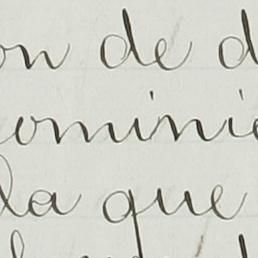 on de d
omini
la que